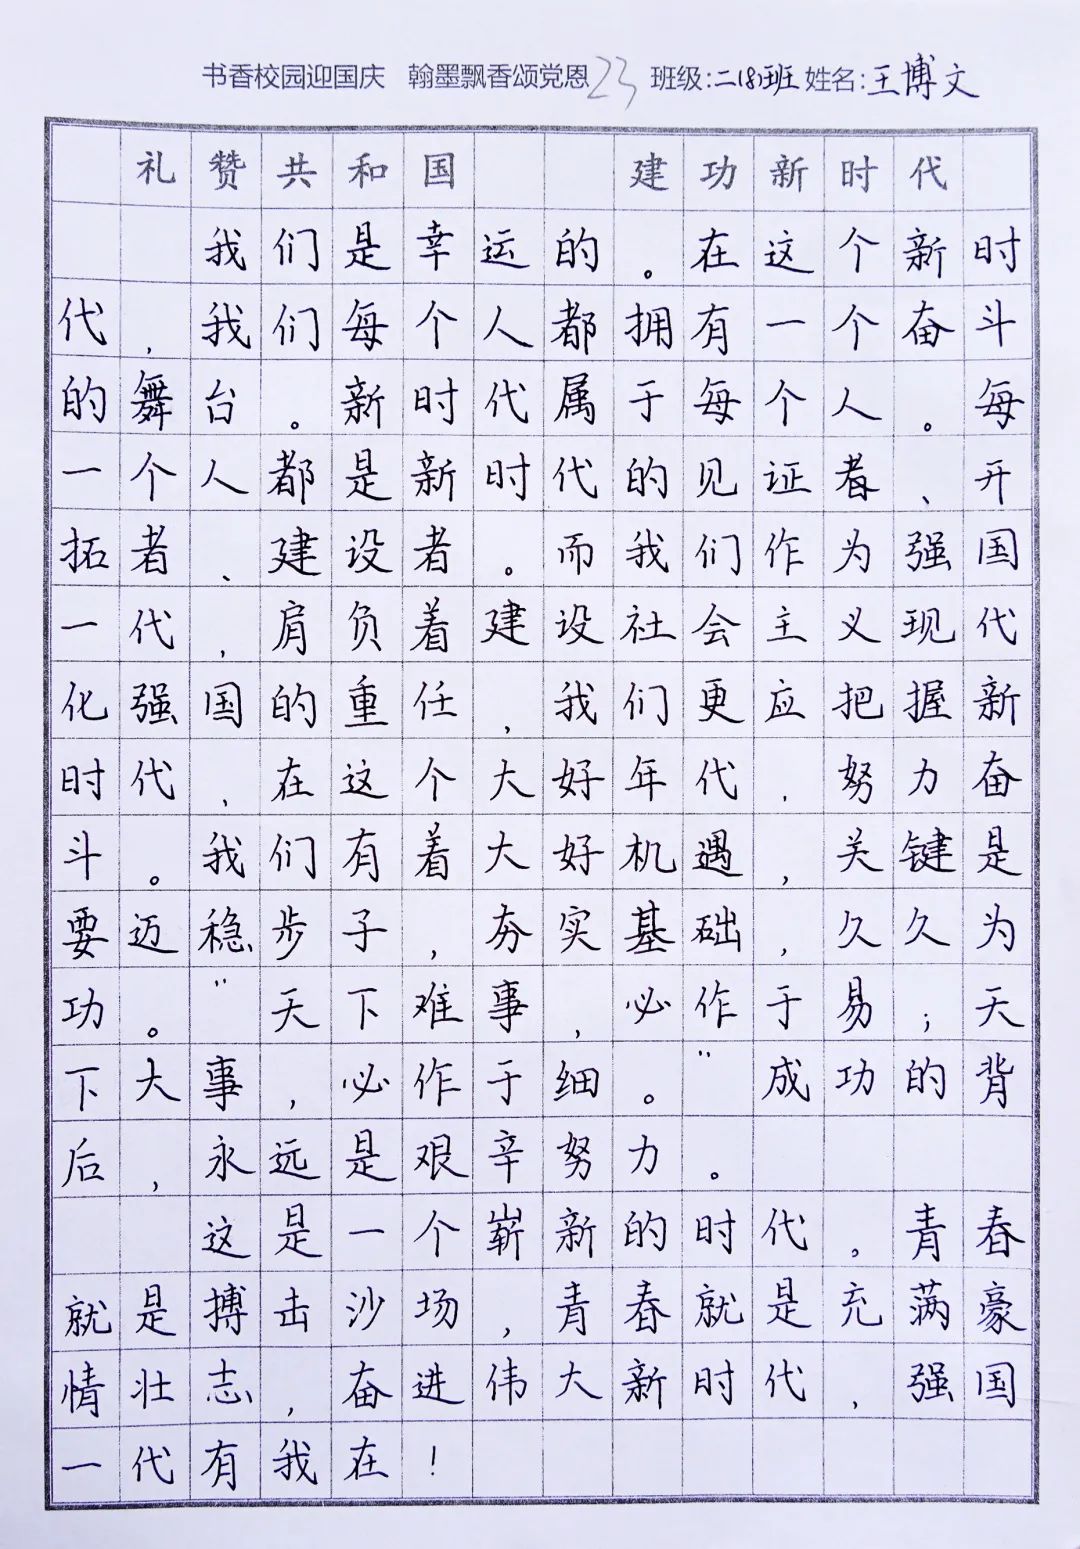 书香校园迎国庆 翰墨飘香颂党恩 23 班级:二(8)班 姓名:王博文
礼赞共和国 建功新时代
我们是幸运的。在这个新时
代,我们每个人都拥有一个奋斗
的舞台。新时代属于每个人。每
一个人都是新时代的见证者、开
拓者、建设者。而我们作为强国
一代,肩负着建设社会主义现代
化强国的重任,我们更应把握新
时代,在这个大好年代,努力奋
斗。我们有着大好机遇,关键是
要迈稳步子,夯实基础,久久为
功。“天下难事,必作于易;天
下大事,必作于细。”成功的背
后,永远是艰辛努力。
这是一个崭新的时代。青春
就是搏击沙场,青春就是充满豪
情壮志,奋进伟大新时代,强国
一代有我在!